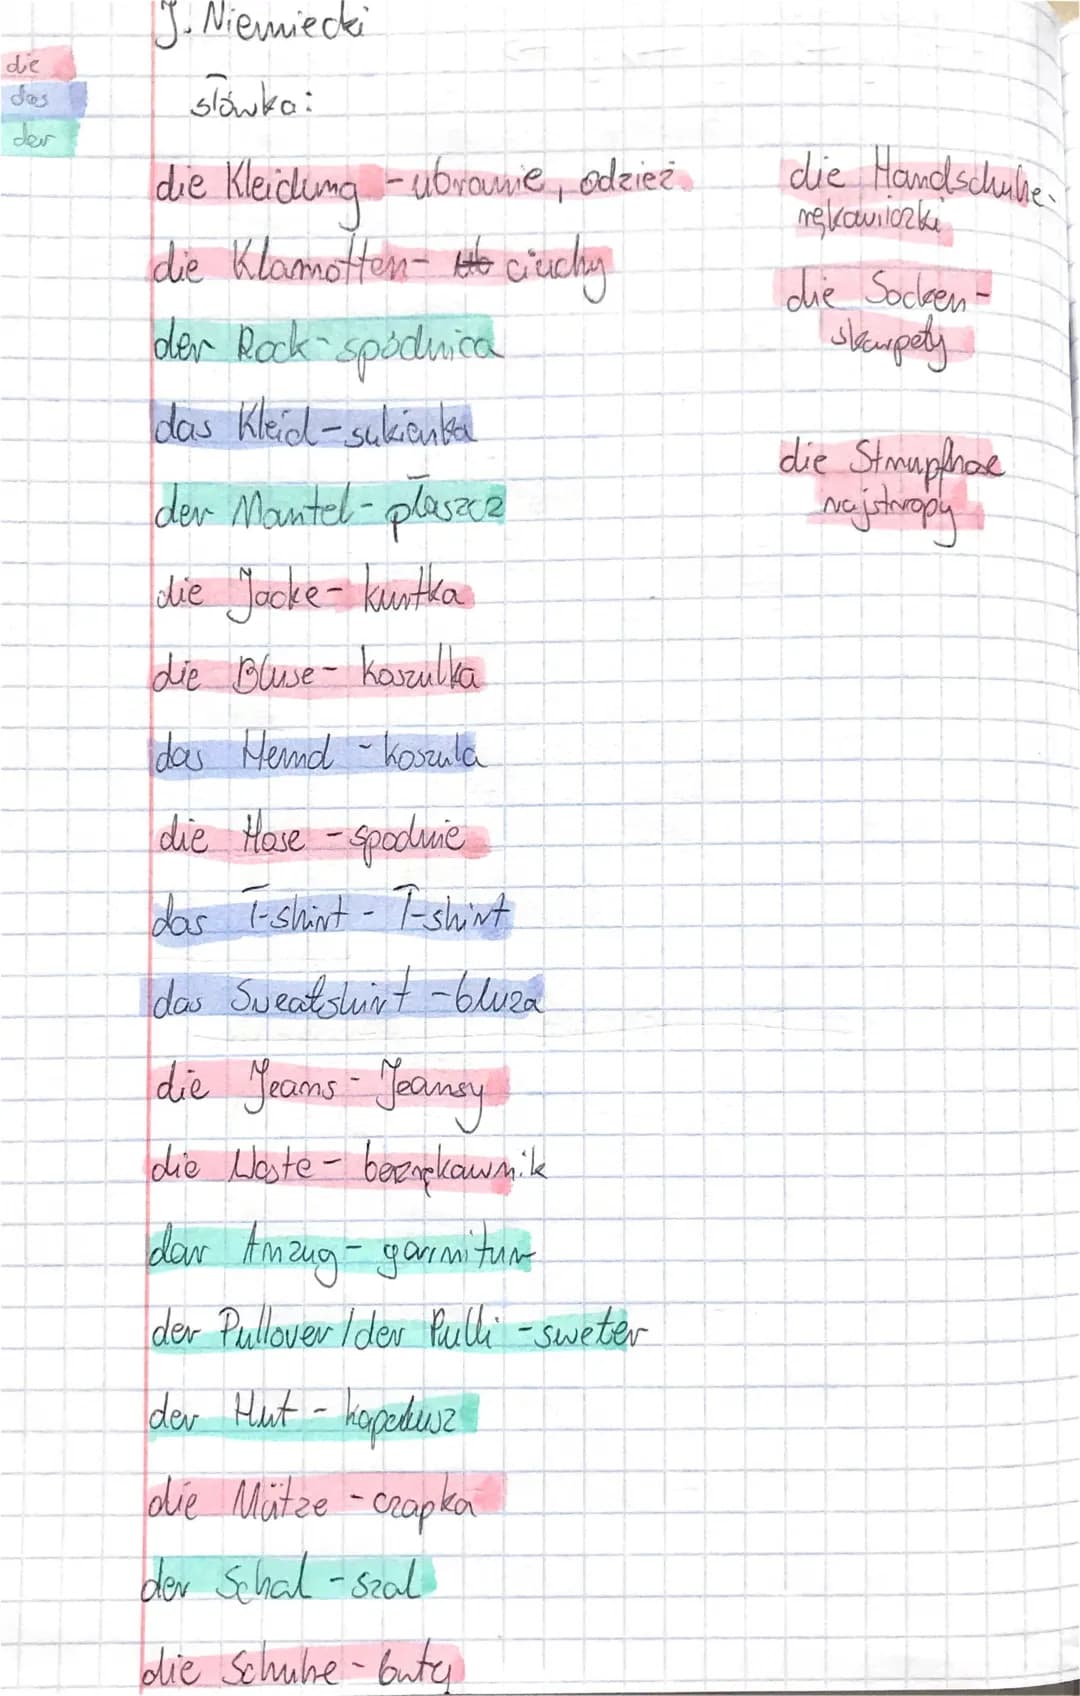 J. Niemiecki
die
das
der
słówka:
die Kleidung - ubranie, odzież
die Klamotten - ciuchy
der Rock - spódnica
das Kleid - sukienka
der Mantel - płaszcz
die Jacke - kurtka
die Bluse - koszulka
das Hemd - koszula
die Hose - spodnie
das T-shirt - T-shirt
das Sweatshirt - bluza
die Jeans - Jeansy
die Weste - bezrękawnik
der Anzug - garnitur
der Pullover / der Pulli - sweter
der Hut - kapelusz
die Mütze - czapka
der Schal - szal
die Schuhe - buty
die Handschuhe -
rękawiczki
die Socken -
skarpety
die Strumpfhose
rajstropy